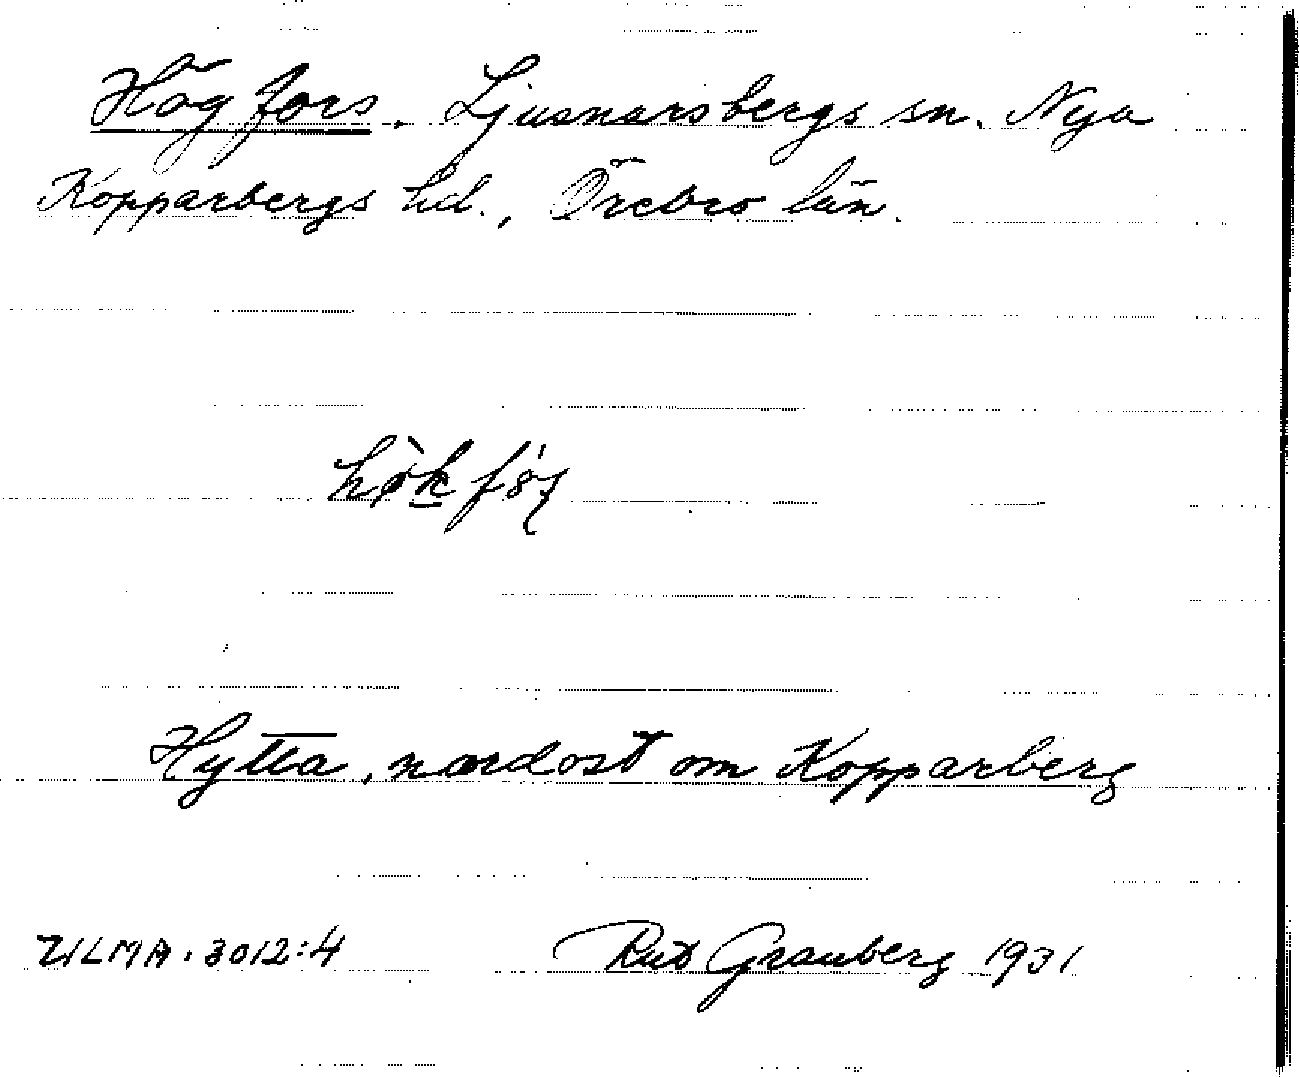 Högfors. Ljusnarsbergs sn. Nya
Kopparbergs hd., Örebro län.
Hytta, nordost om Kopparberg
ULMA. 3012:4 Rut Granberg 1931